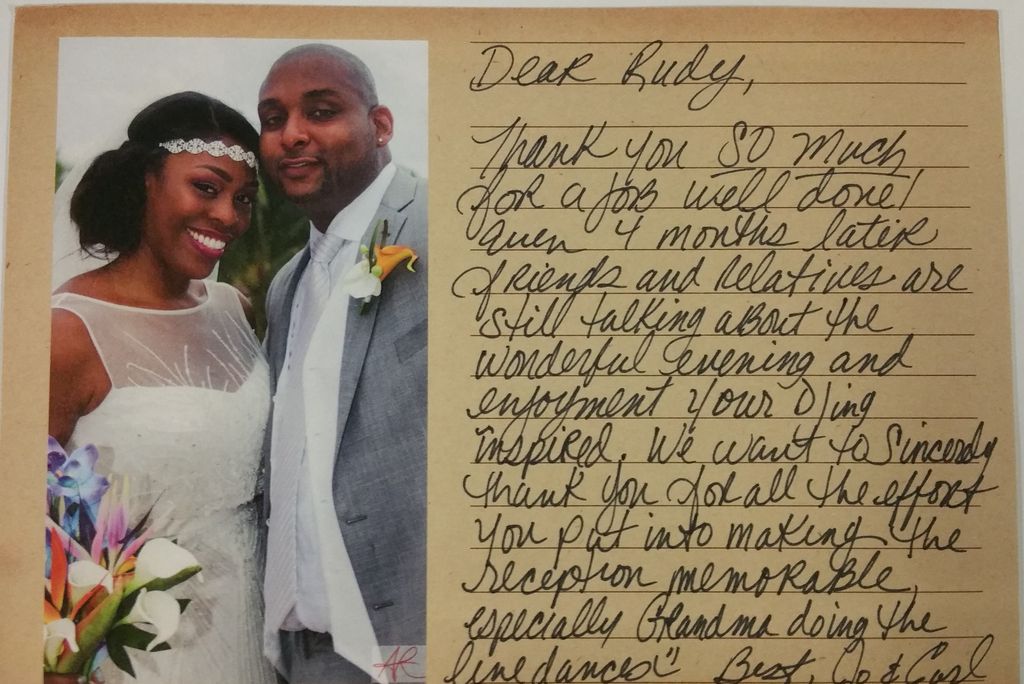 Dear Rudy,
Thank you SO much
for a job well done!
even 4 months later
friends and relatives are
still talking about the
wonderful evening and
enjoyment your DJing
inspired. We want to Sincerely
thank you for all the effort
you put into making the
reception memorable,
especially Grandma doing the
line dances" Best, & Carl
AR